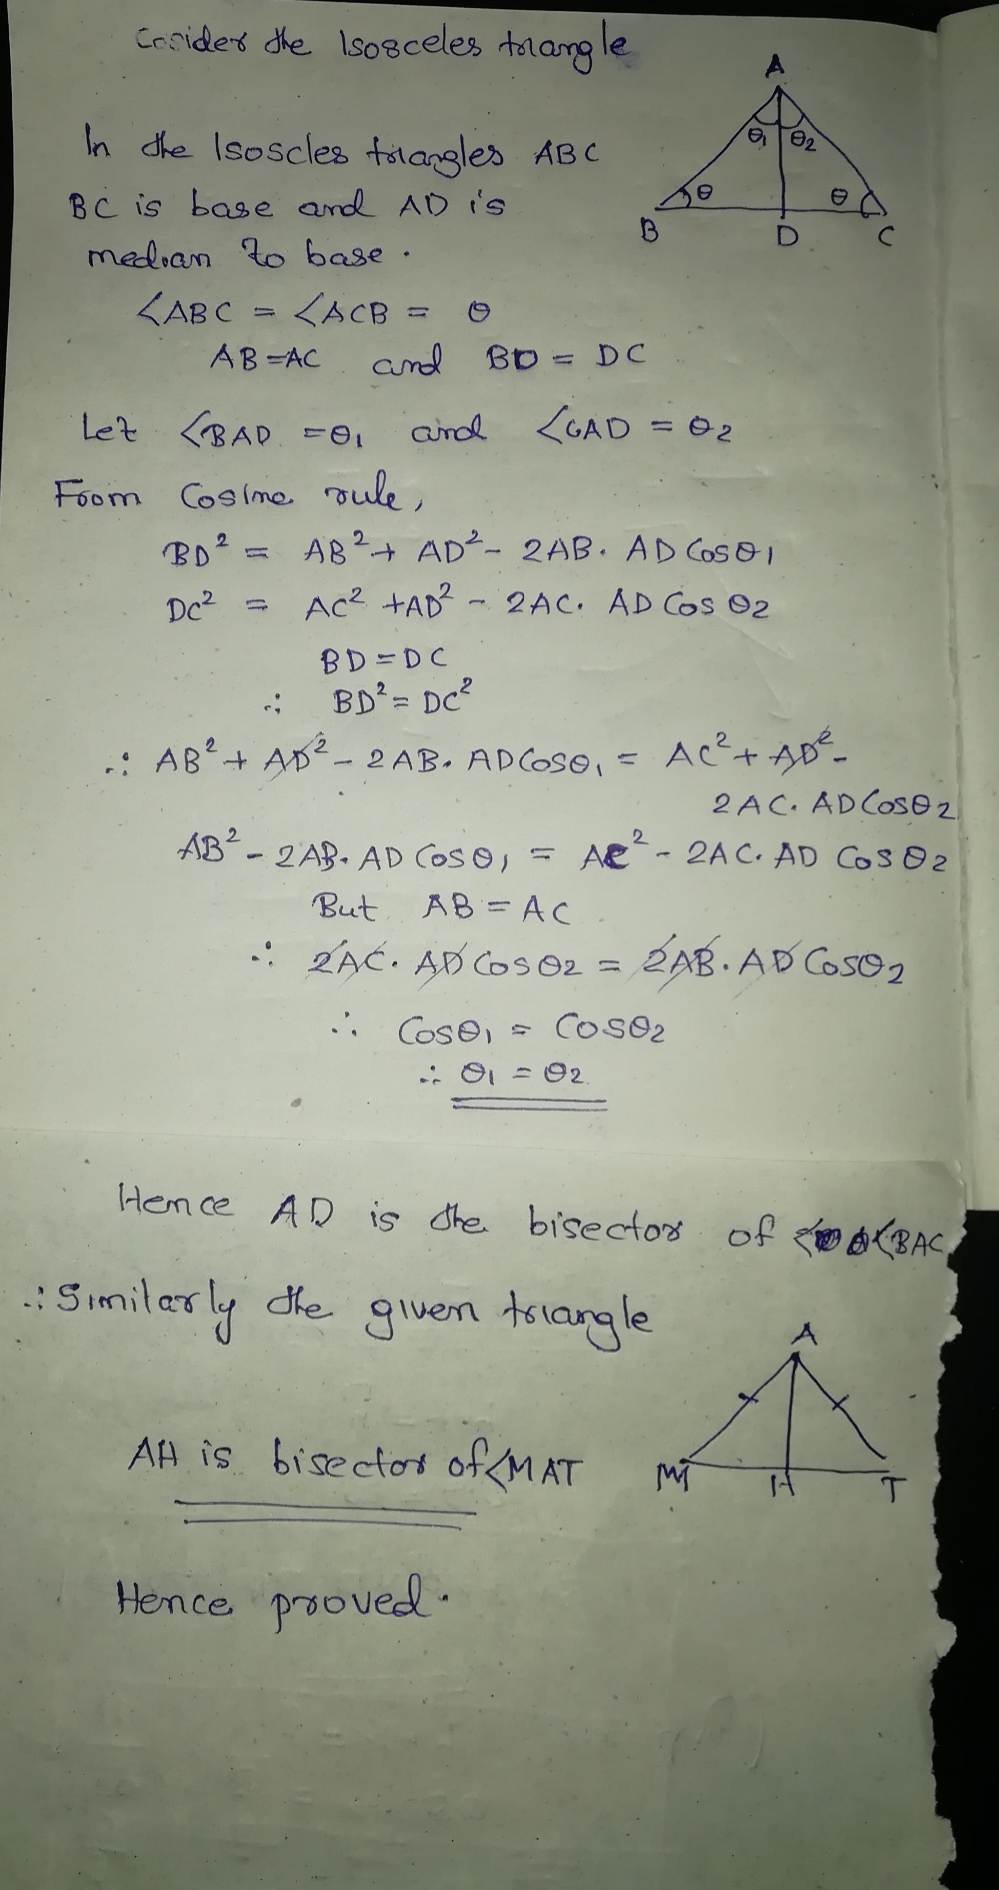 Cosider the Isosceles triangle
A
In the Isoscles triangles ABC
θ₁ θ₂
BC is base and AD is
θ θ
B D C
median to base.
∠ABC = ∠ACB = θ
AB=AC and BD = DC
Let ∠BAD = θ₁ and ∠CAD = θ₂
From Cosine rule,
BD² = AB² + AD² - 2AB. AD Cosθ₁
DC² = AC² + AD² - 2AC. AD Cos θ₂
BD = DC
∴ BD² = DC²
∴ AB² + AD² - 2AB. AD Cosθ₁ = AC² + AD² -
2AC. AD Cosθ₂
AB² - 2AB. AD Cosθ₁ = AC² - 2AC. AD Cos θ₂
But AB = AC
∴ 2AC. AD Cos θ₂ = 2AB. AD Cosθ₂
∴ Cosθ₁ = Cosθ₂
∴ θ₁ = θ₂
Hence AD is the bisector of ∠BAC
∴ Similarly the given triangle
A
AH is bisector of ∠MAT
M H T
Hence proved.